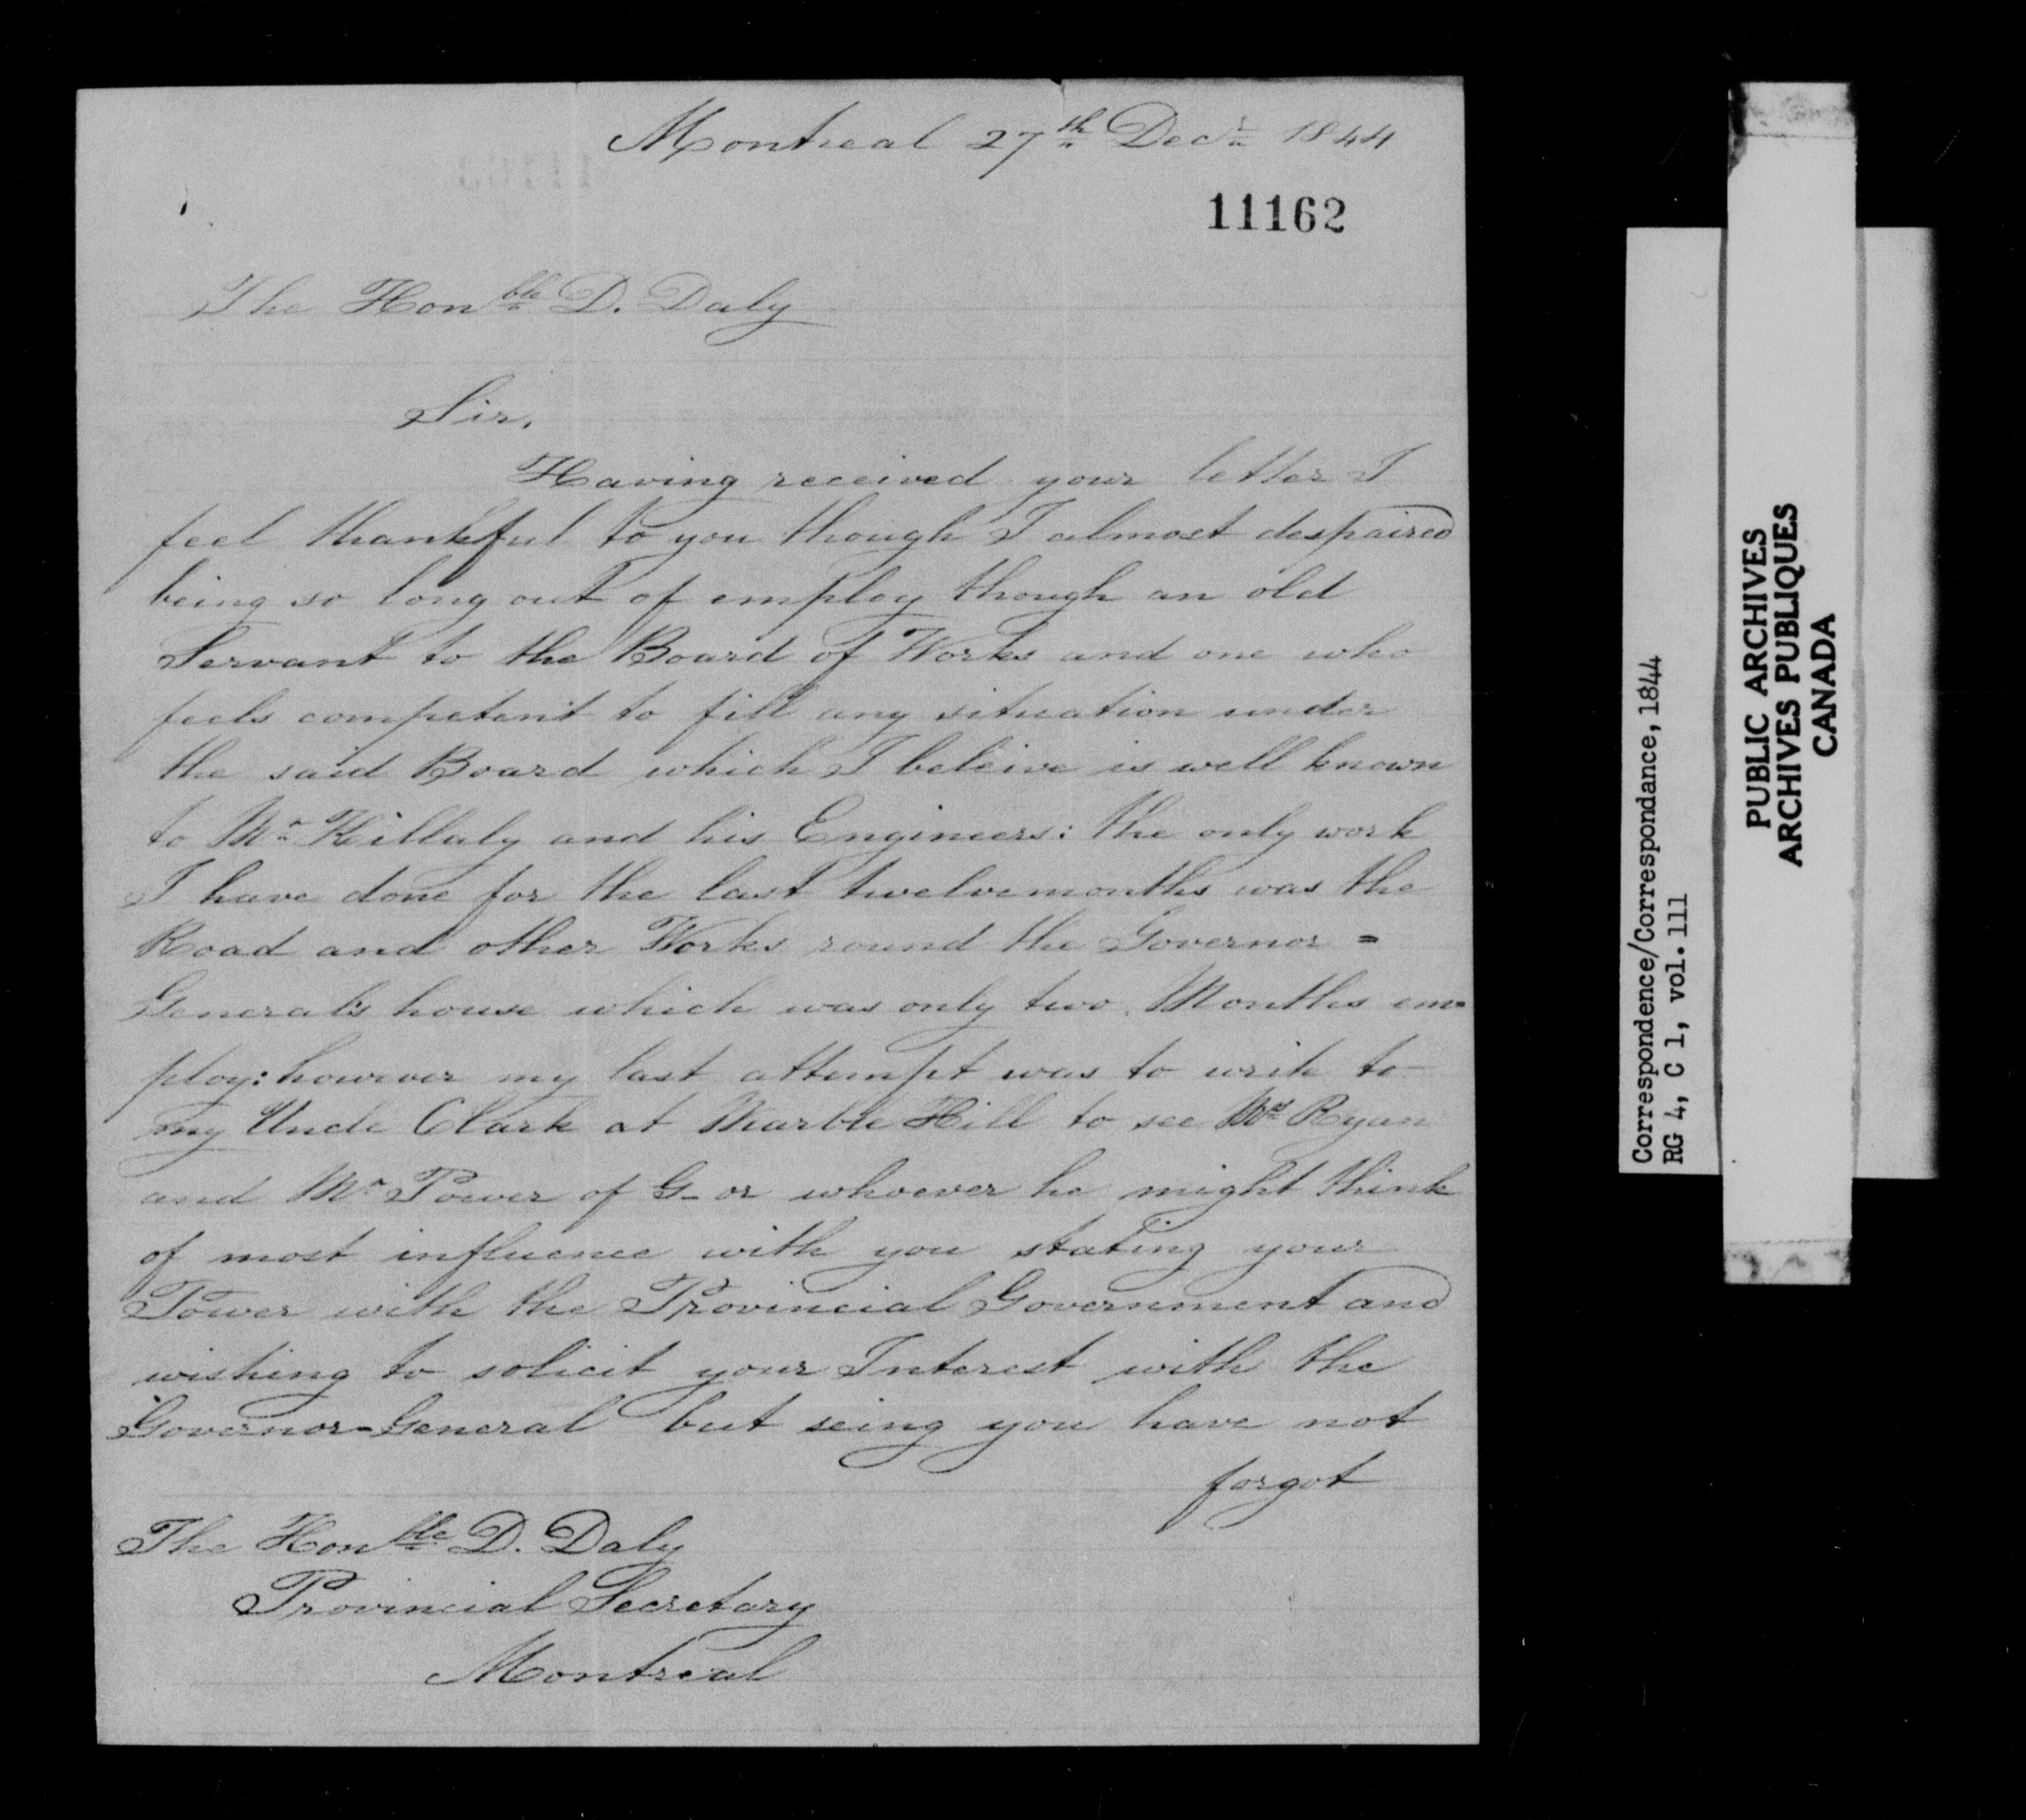 Montreal 27th Decr 1844
11162
The Honble D. Daly
Sir,
Having received your letter I
feel thankful to you though I almost despaired
being so long out of employ though an old
Servant to the Board of Works and one who
feels competent to fill any situation under
the said Board which I beleive is well known
to Mr Killaly and his Engineers: the only work
I have done for the last twelvemonths was the
Road and other Works round the Governor =
General's house which was only two Months em=
ploy: however my last attempt was to write to
my Uncle Clark at Marble Hill to see Mrs Ryan
and Mr Power of G- or whoever he might think
of most influence with you stating your
Power with the Provincial Government and
wishing to solicit your Interest with the
Governor=General but seing you have not
forgot
The Honble D. Daly
Provincial Secretary
Montreal
Correspondence/Correspondance, 1844
RG 4, C 1, vol. 111
PUBLIC ARCHIVES
ARCHIVES PUBLIQUES
CANADA